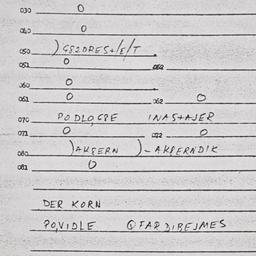 030 O
040 O
050 )GSZDRES+/E/T
051 O 052
060 O
061 O 062 O
070 PODLOGPE INASTAJER
071 O 072 O
080 )AKSERN )-AKPERNDIK
081 O
DER KORN
POVIDLE QTARDIBEJMES